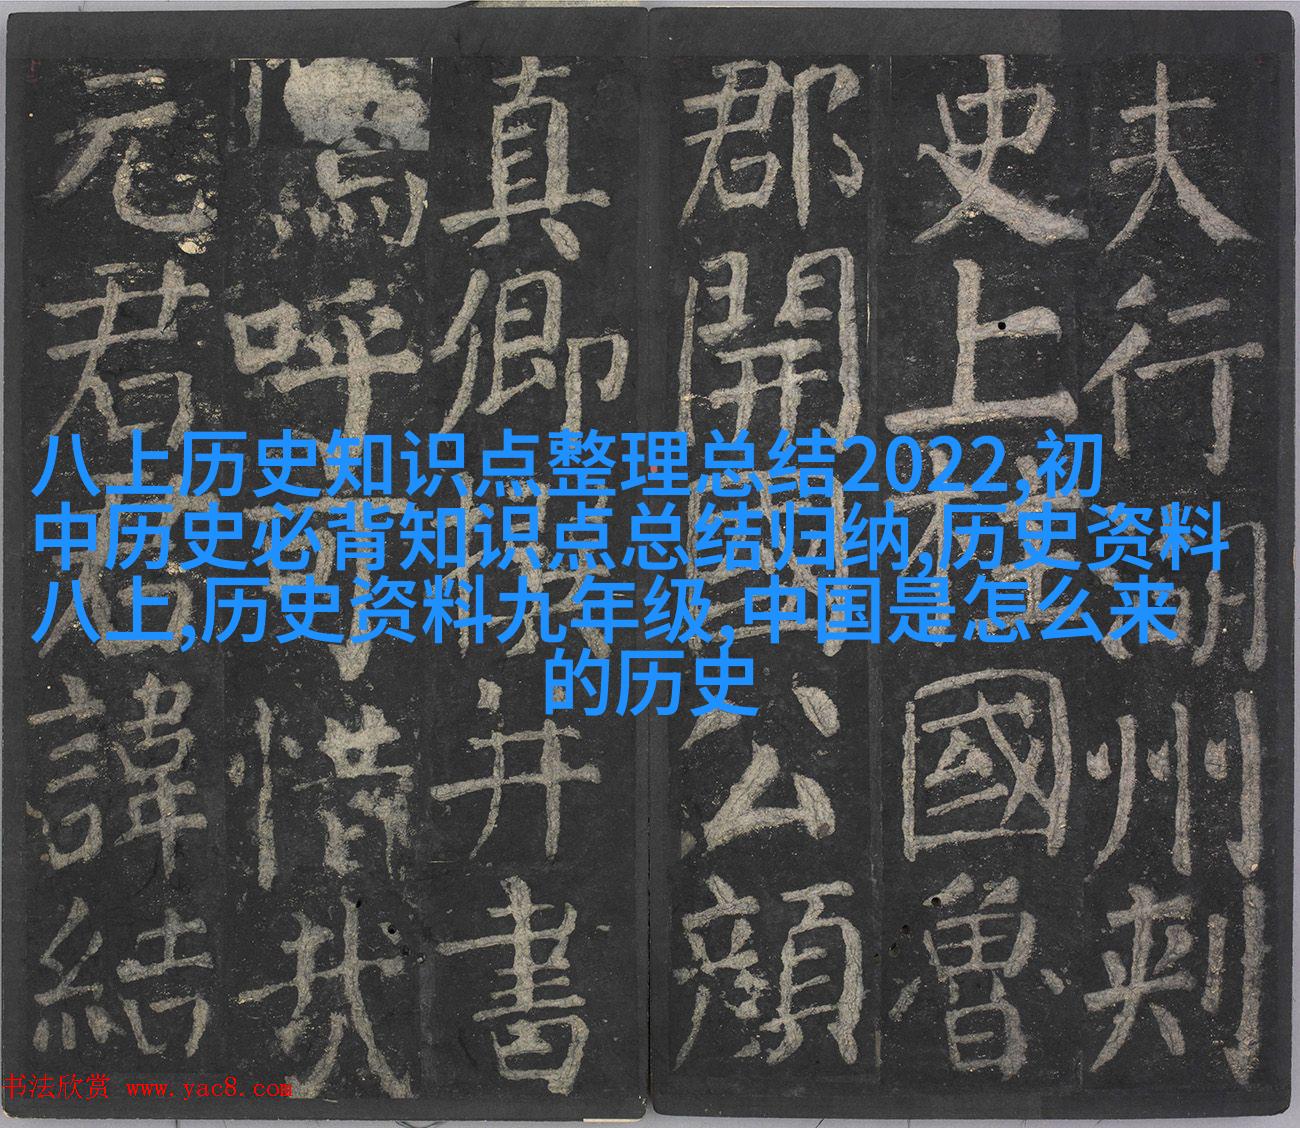 八上历史知识点整理总结2022,初
中历史必背知识点总结归纳,历史资料
八上,历史资料九年级,中国是怎么来
的历史
夫行湖州刺
史上柱國魯
郡開國公顏
真卿撰并書
嗚呼可惜哉
元君君諱結
书法欣赏 www.yac8.com